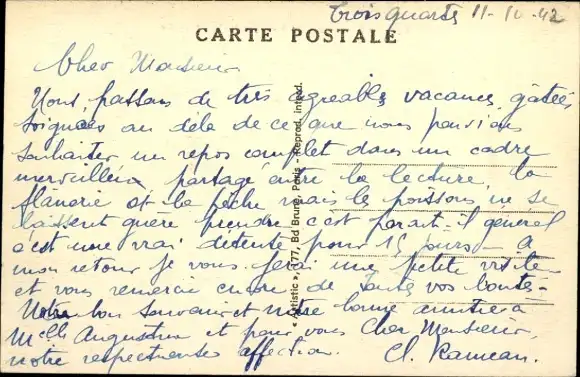 Trois quarts 11-10-42
CARTE POSTALE
Cher Monsieur
Nous passons de très agréables vacances, gâtées
soignées au déla de ce que nous pouvions
souhaiter un repos complet dans un cadre
merveilleux partagé entre la lecture, la
flanerie et la pêche mais les poissons ne se
laissent guère prendre c'est parait-il général
c'est une vrai détente pour 15 jours - A
mon retour je vous ferai une petite visite
et vous remercierai encore de toutes vos bontés -
Notre bon souvenir et notre bonne amitié à
Melle Augustine et pour vous Cher Monsieur,
notre respectueuse affection. Cl. Rameau.
« Artistic », 177, Bd Brune, Paris - Reprod. interd.